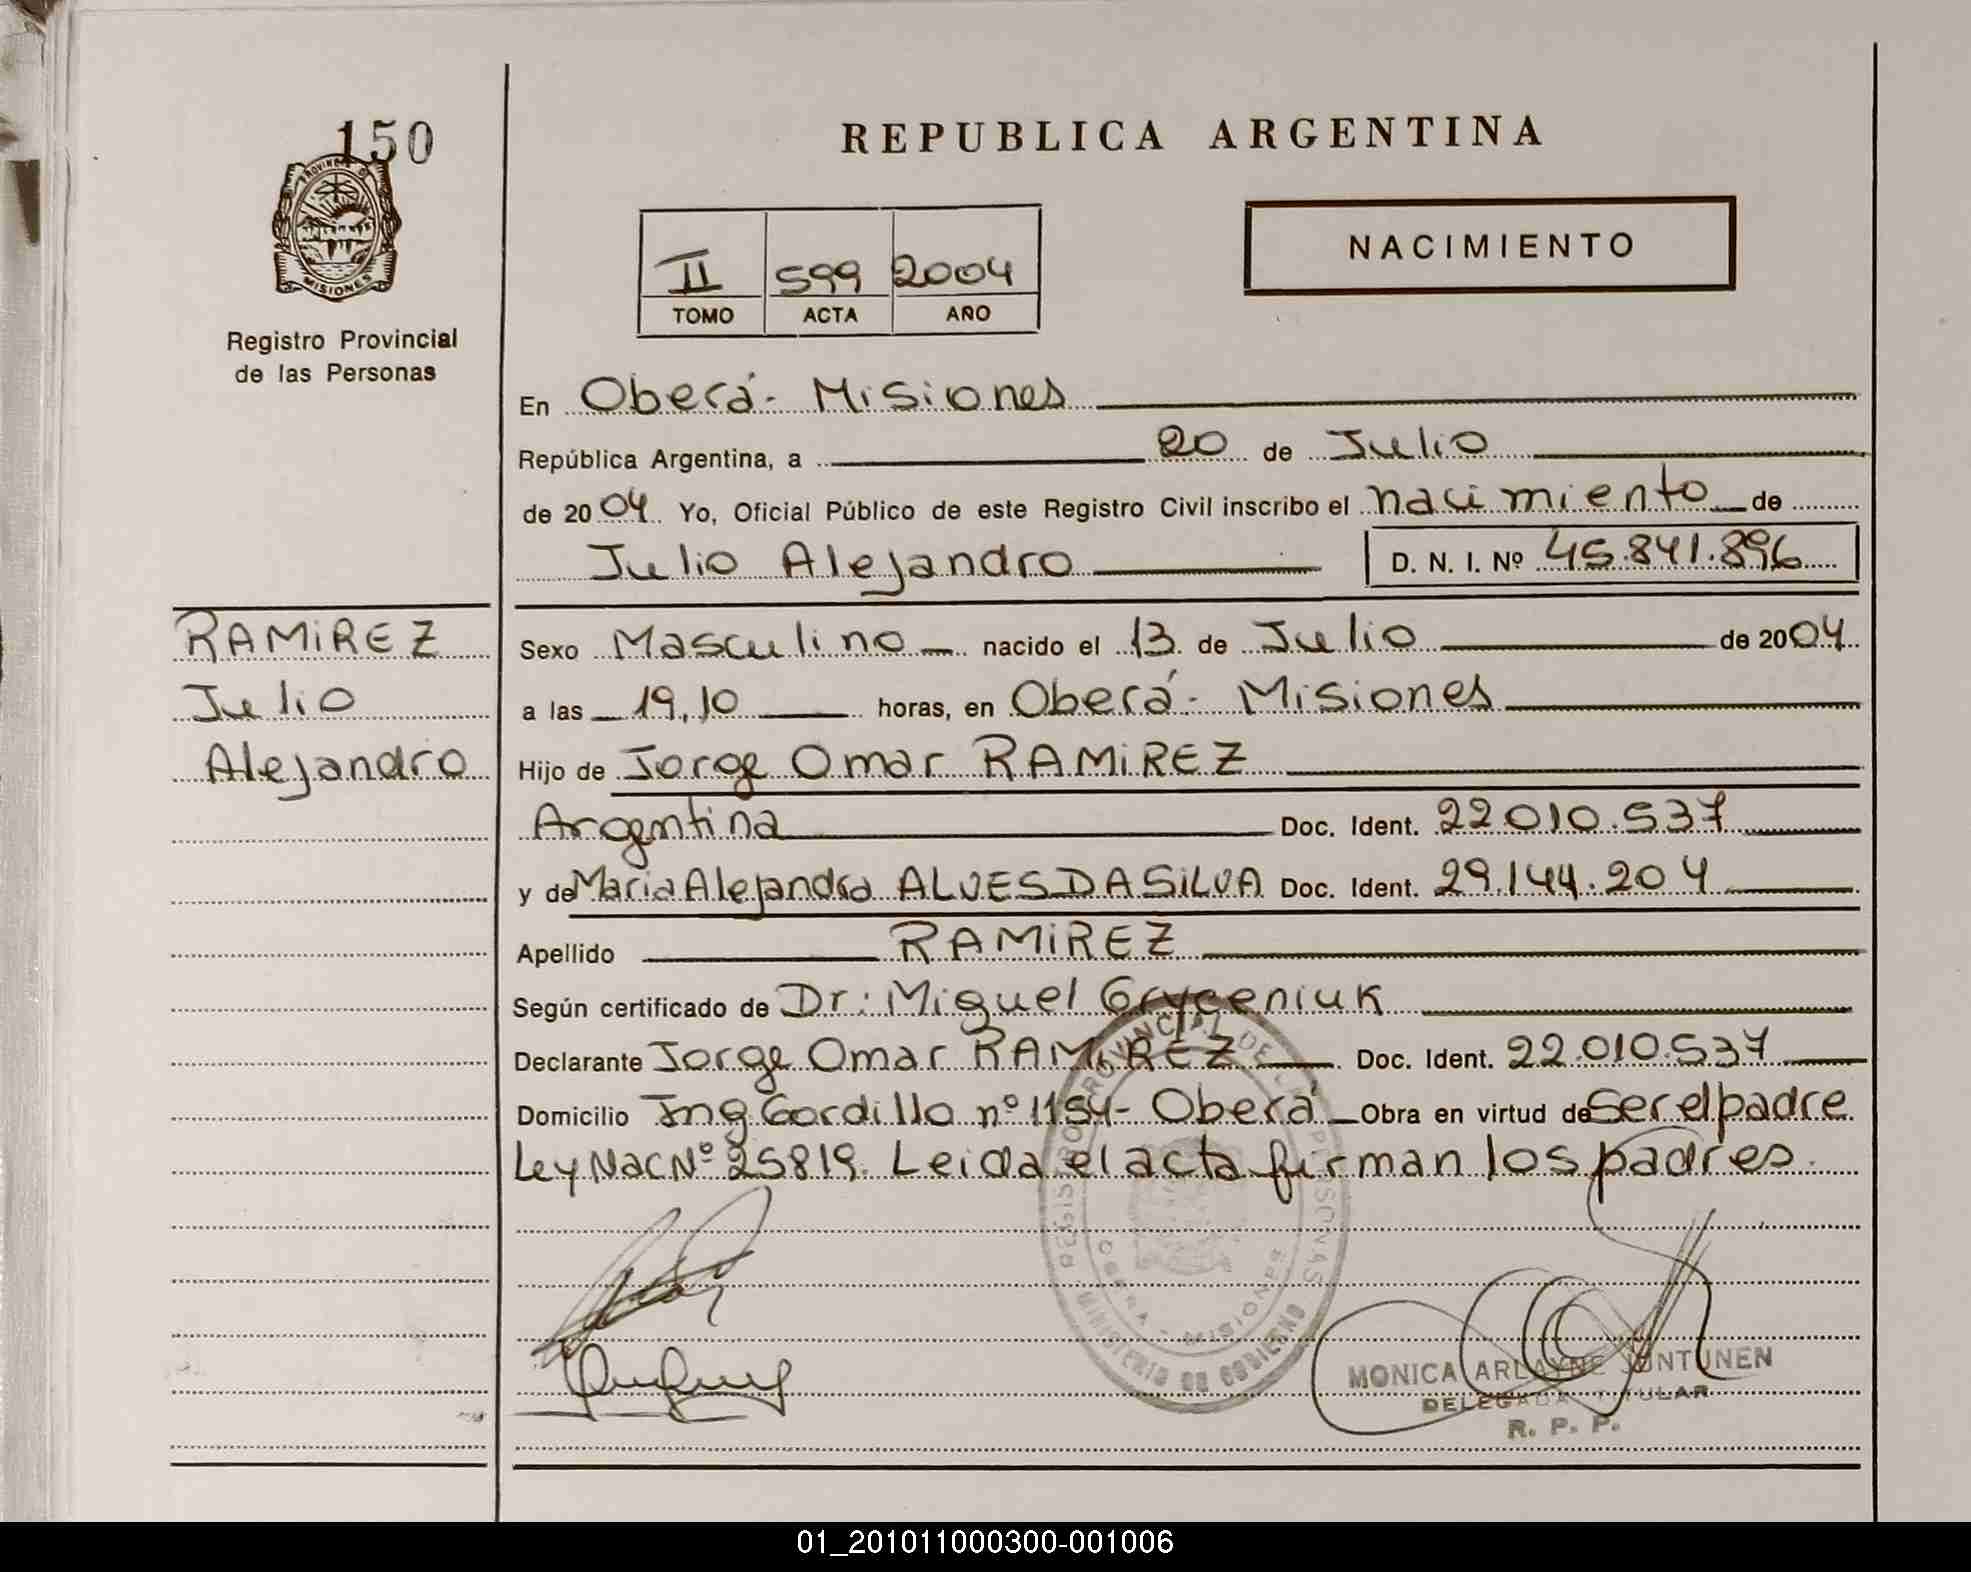 150
PROVINCIA DE
MISIONES
Registro Provincial
de las Personas
REPUBLICA ARGENTINA
II 599 2004
TOMO ACTA AÑO
NACIMIENTO
En Oberá - Misiones
República Argentina, a 20 de Julio
de 2004 Yo, Oficial Público de este Registro Civil inscribo el nacimiento de
Julio Alejandro D. N. I. Nº 45.841.896
RAMIREZ
Julio
Alejandro
Sexo Masculino nacido el 13 de Julio de 2004
a las 19,10 horas, en Oberá - Misiones
Hijo de Jorge Omar RAMIREZ
Argentina Doc. Ident. 22.010.537
y de Maria Alejandra ALVES DA SILVA Doc. Ident. 29.144.204
Apellido RAMIREZ
Según certificado de Dr: Miguel Gryceniuk
Declarante Jorge Omar RAMIREZ Doc. Ident. 22.010.537
Domicilio Ing Gordillo nº 1154 - Oberá Obra en virtud de Ser el padre
Ley Nac Nº 25819. Leida el acta firman los padres.
REGISTRO PROVINCIAL DE LAS PERSONAS
MINISTERIO DE GOBIERNO
OBERA - MISIONES
MONICA ARLAYNE JUNTUNEN
DELEGADA TITULAR
R. P. P.
01_201011000300-001006